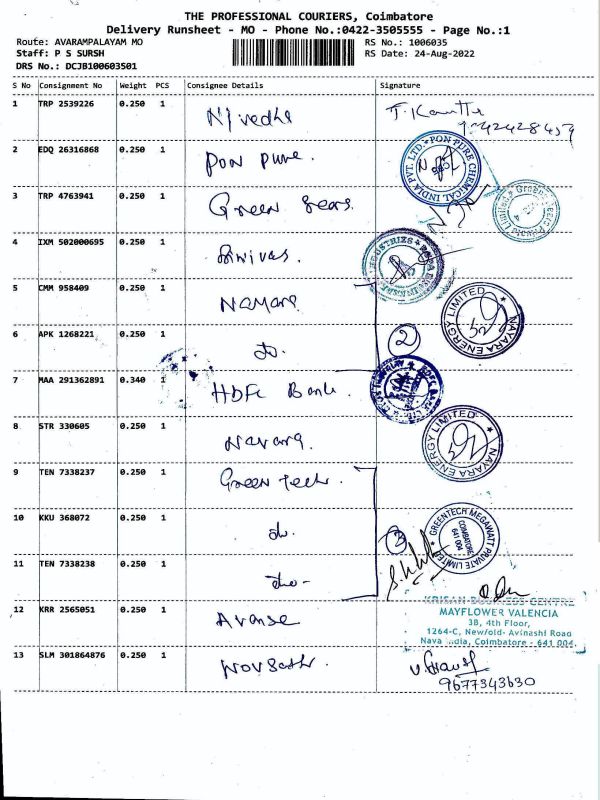 THE PROFESSIONAL COURIERS, Coimbatore
Delivery Runsheet - MO - Phone No.:0422-3505555 - Page No.:1
Route: AVARAMPALAYAM MO RS No.: 1006035
Staff: P S SURSH RS Date: 24-Aug-2022
DRS No.: DCJB100603501
S No Consignment No Weight PCS Consignee Details Signature
1 TRP 2539226 0.250 1 Nivedha
2 EDQ 26316868 0.250 1 Pon Pure.
PON PURE CHEMICAL INDIA PVT. LTD.
3 TRP 4763941 0.250 1 Green Gears
4 IXM 502000695 0.250 1 Srinivas.
5 CMM 958409 0.250 1 Nayara
NAYARA ENERGY LIMITED
6 APK 1268221 0.250 1 do. 2
7 MAA 291362891 0.340 1 HDFC Bank.
8 STR 330605 0.250 1 Nayara.
NAYARA ENERGY LIMITED
9 TEN 7338237 0.250 1 Green Tech.
10 KKU 368072 0.250 1 do. 3
GREENTECH MEGAWATT PRIVATE LIMITED
COIMBATORE
641 004
11 TEN 7338238 0.250 1 do-
12 KRR 2565051 0.250 1 Avanse
KRISAN BUSINESS CENTRE
MAYFLOWER VALENCIA
3B, 4th Floor,
1264-C, Newfold- Avinashi Road
Nava India, Coimbatore - 641 004.
13 SLM 301864876 0.250 1
9677343630